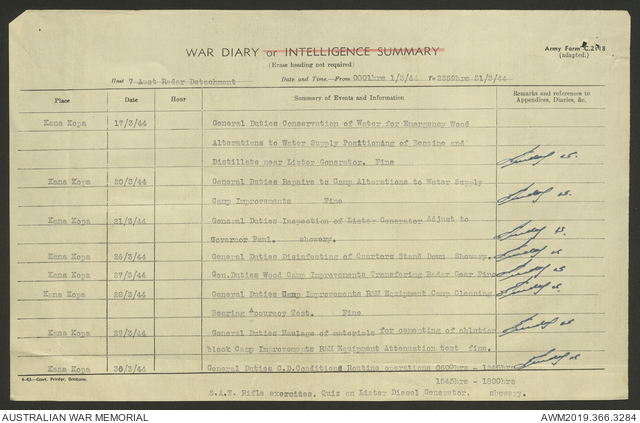 WAR DIARY or INTELLIGENCE SUMMARY
(Erase heading not required)
Army Form C.2118
(adapted.)
Unit 7 Aust Radar Detachment
Date and Time.—From 0001hrs 1/3/44 To 2359hrs 31/3/44
Place Date Hour Summary of Events and Information Remarks and references to
Appendices, Diaries, &c.
Kana Kopa 17/3/44 General Duties Conservation of Water for Emergency Wood
Alterations to Water Supply Positioning of Benzine and
Distillate near Lister Generator. Fine
Kana Kopa 20/3/44 General Duties Repairs to Camp Alterations to Water Supply
Camp Improvements Fine
Kana Kopa 21/3/44 General Duties Inspection of Lister Generator Adjust to
Governor Panl. showery.
Kana Kopa 26/3/44 General Duties Disinfecting of Quarters Stand Down Showery.
Kana Kopa 27/3/44 Gen.Duties Wood Camp Improvements Transfering Radar Gear Fine
Kana Kopa 28/3/44 General Duties Camp Improvements R&M Equipment Camp Cleaning
Bearing Accuracy Test. Fine
Kana Kopa 29/3/44 General Duties Haulage of materials for cementing of ablution
block Camp Improvements R&M Equipment Attenuation test fine.
Kana Kopa 30/3/44 General Duties C.D.Conditions Routine operations 0600hrs -
1845hrs - 1800hrs
S.A.T. Rifle exercises. Quiz on Lister Diesel Generator. showery.
4-43—Govt. Printer, Brisbane.
AUSTRALIAN WAR MEMORIAL
AWM2019.366.3284